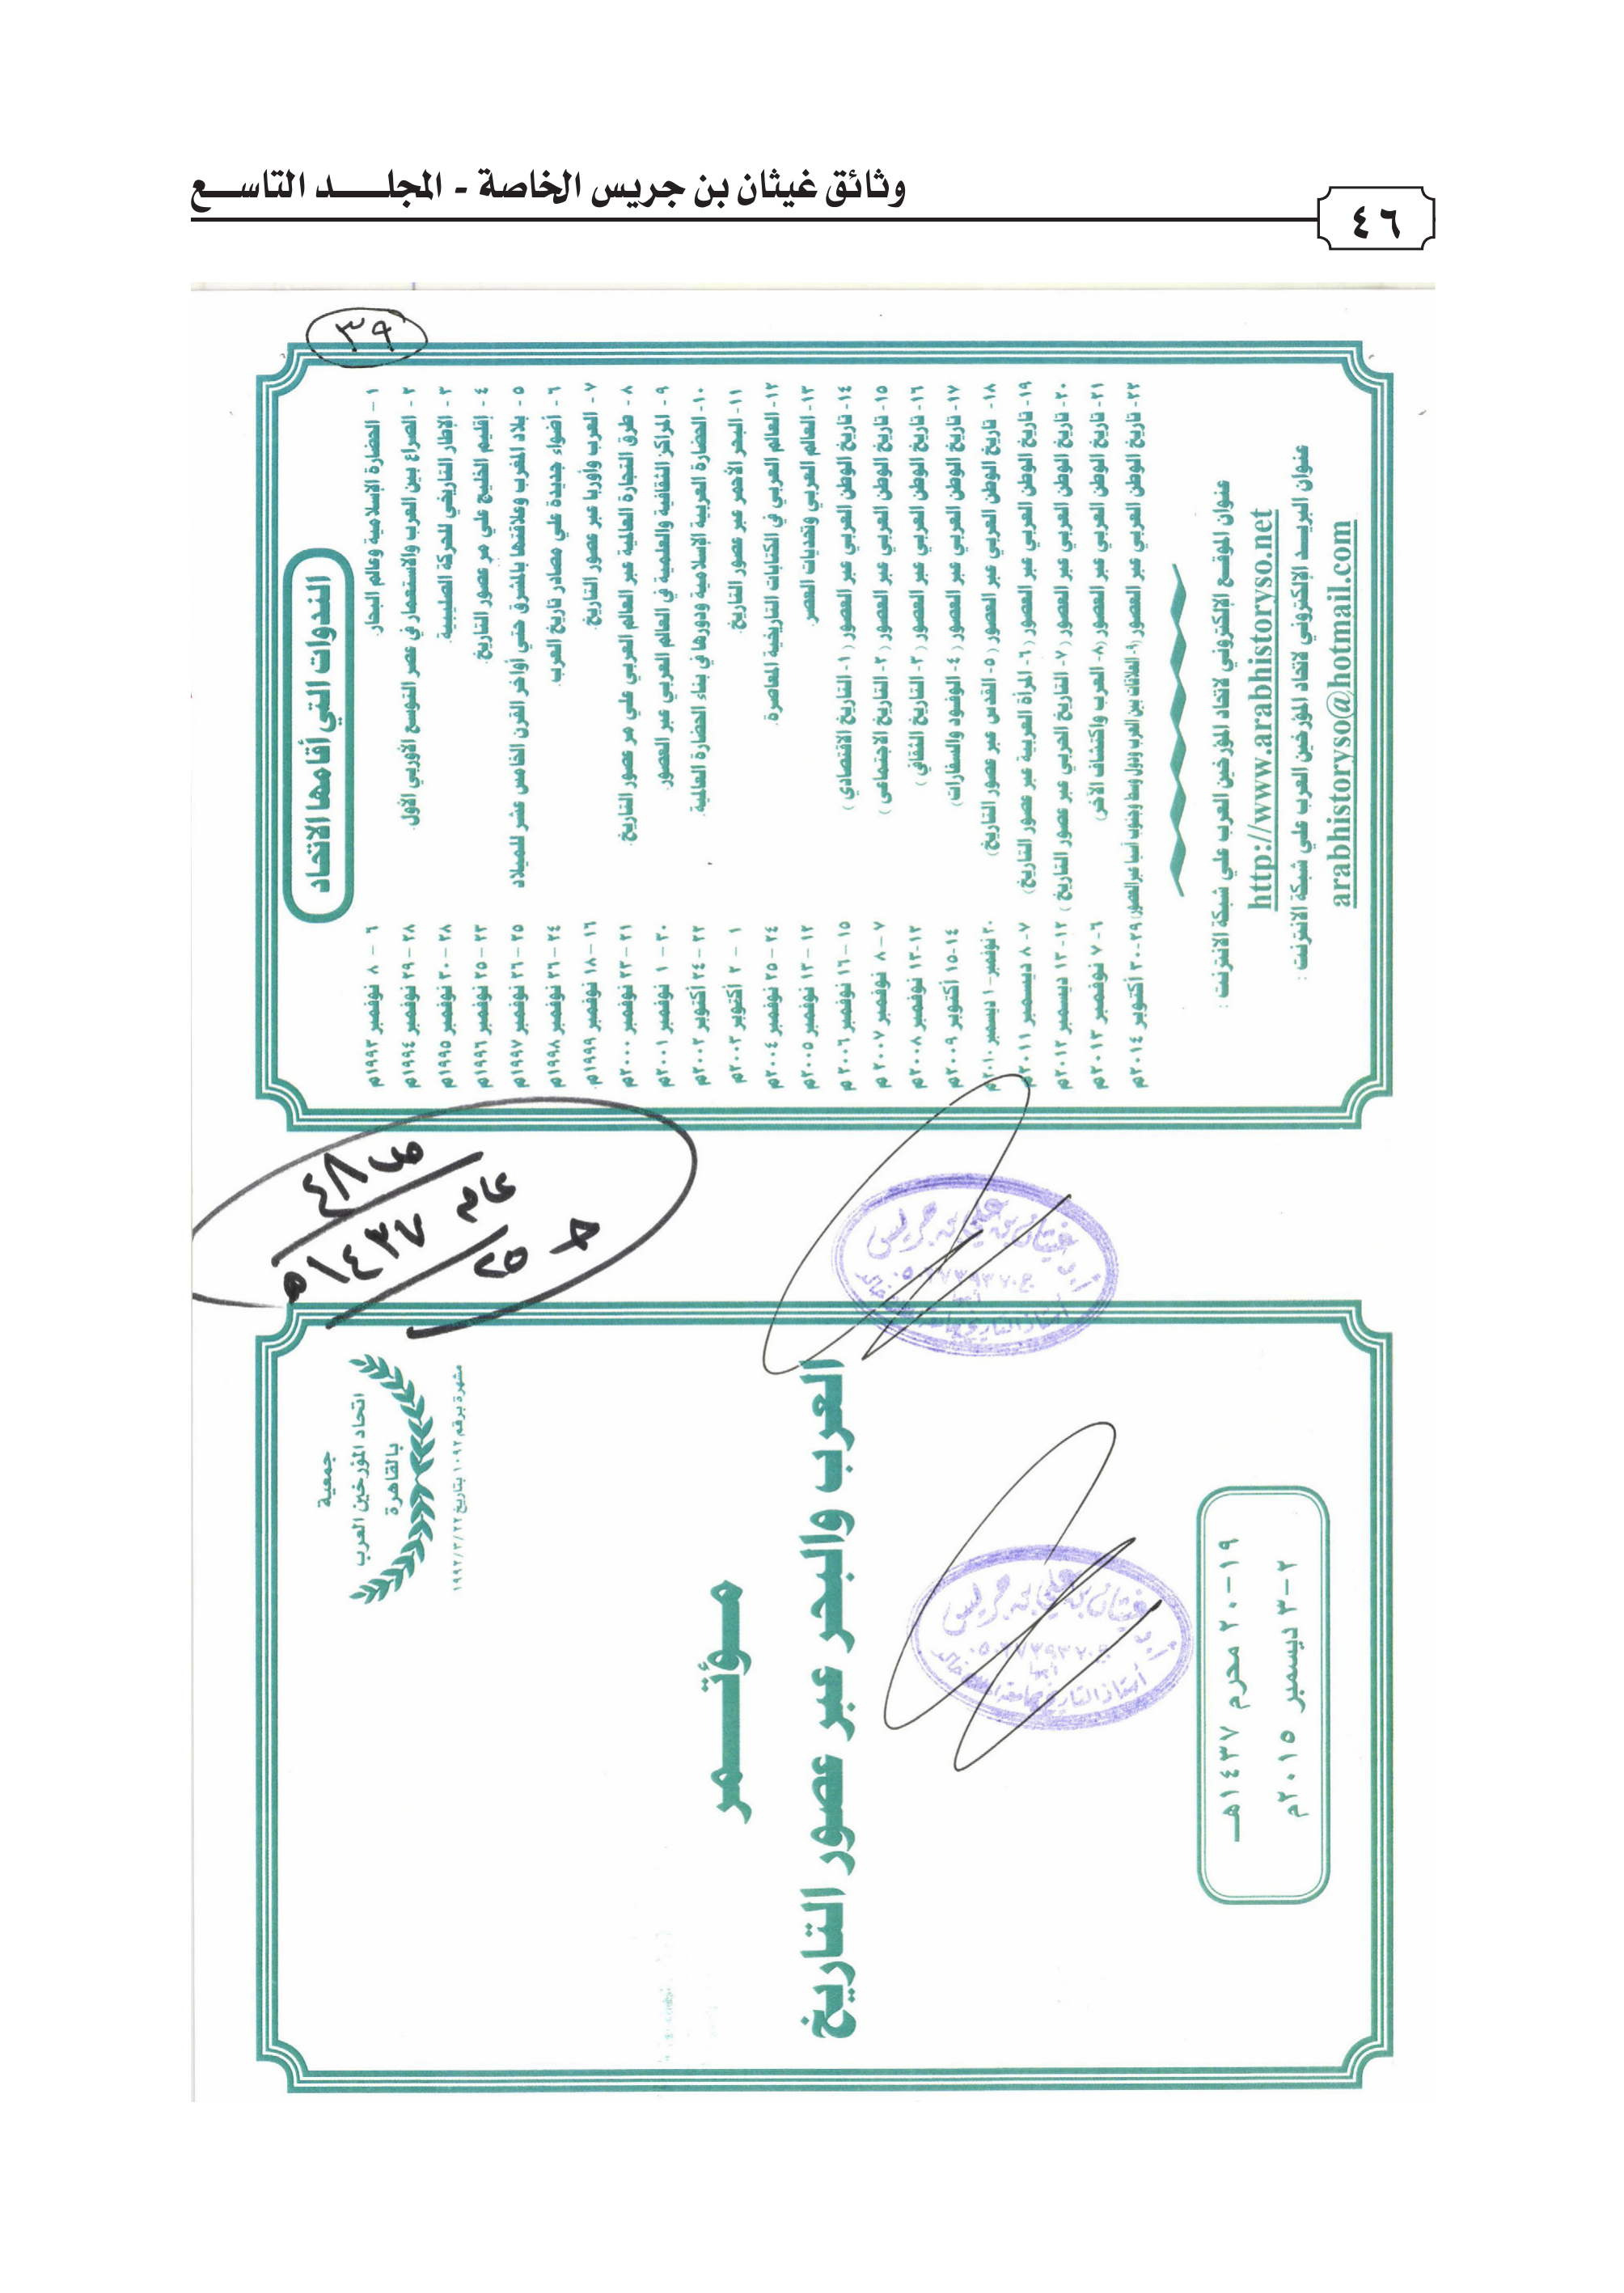 وثائق غيثان بن جريس الخاصة - المجلـــد التاســـع
٤٦
٣٩
الندوات التي أقامها الاتحاد
١ - الحضارة الإسلامية وعالم البحار. ٦ - ٨ نوفمبر ١٩٩٣م
٢ - الصراع بين العرب والاستعمار في عصر التوسع الأوربي الأول. ٢٨ - ٢٩ نوفمبر ١٩٩٤م
٣ - الإطار التاريخي للحركة الصليبية. ٢٨ - ٣٠ نوفمبر ١٩٩٥م
٤ - إقليم الخليج علي مر عصور التاريخ. ٢٣ - ٢٥ نوفمبر ١٩٩٦م
٥ - بلاد المغرب وعلاقتها بالمشرق حتي أواخر القرن الخامس عشر للميلاد ٢٥ - ٢٦ نوفمبر ١٩٩٧م
٦ - أضواء جديدة علي مصادر تاريخ العرب. ٢٤ - ٢٦ نوفمبر ١٩٩٨م
٧ - العرب وأوربا عبر عصور التاريخ. ١٦ - ١٨ نوفمبر ١٩٩٩م.
٨ - طرق التجارة العالمية عبر العالم العربي علي مر عصور التاريخ. ٢١ - ٢٣ نوفمبر ٢٠٠٠م
٩ - المراكز الثقافية والعلمية في العالم العربي عبر العصور. ٣٠ - ١ نوفمبر ٢٠٠١م
١٠- الحضارة العربية الإسلامية ودورها في بناء الحضارة العالمية. ٢٢ - ٢٤ أكتوبر ٢٠٠٢م
١١- البحر الأحمر عبر عصور التاريخ. ١ - ٢ أكتوبر ٢٠٠٣م
١٢- العالم العربي في الكتابات التاريخية المعاصرة. ٢٤ - ٢٥ نوفمبر ٢٠٠٤م
١٣- العالم العربي وتحديات العصر. ١٢ - ١٣ نوفمبر ٢٠٠٥م
١٤- تاريخ الوطن العربي عبر العصور (١- التاريخ الاقتصادي) ١٥ - ١٦ نوفمبر ٢٠٠٦م
١٥- تاريخ الوطن العربي عبر العصور (٢- التاريخ الاجتماعى) ٧ - ٨ نوفمبر ٢٠٠٧م
١٦- تاريخ الوطن العربي عبر العصور (٣- التاريخ الثقافي) ١٢-١٣ نوفمبر ٢٠٠٨م
١٧- تاريخ الوطن العربي عبر العصور (٤- الوفود والسفارات) ١٤-١٥ أكتوبر ٢٠٠٩م
١٨- تاريخ الوطن العربي عبر العصور (٥- القدس عبر عصور التاريخ) ٣٠ نوفمبر-١ ديسمبر ٢٠١٠م
١٩- تاريخ الوطن العربي عبر العصور (٦- المرأة العربية عبر عصور التاريخ) ٧-٨ ديسمبر ٢٠١١م
٢٠- تاريخ الوطن العربي عبر العصور (٧- التاريخ الحربي عبر عصور التاريخ) ١٢-١٣ ديسمبر ٢٠١٢م
٢١- تاريخ الوطن العربي عبر العصور (٨- العرب واكتشاف الآخر) ٦-٧ نوفمبر ٢٠١٣م
٢٢- تاريخ الوطن العربي عبر العصور (٩- العلاقات بين العرب ودول وسط وجنوب آسيا عبر العصور) ٢٩-٣٠ أكتوبر ٢٠١٤م
عنوان الموقع الإلكتروني لاتحاد المؤرخين العرب علي شبكة الانترنت :
http://www.arabhistoryso.net
عنوان البريد الإلكتروني لاتحاد المؤرخين العرب علي شبكة الانترنت :
arabhistoryso@hotmail.com
ص ٤٨
عام ١٤٣٧هـ
ح ٢٥
أ.د. غيثان بن علي بن جريس
أبها
أستاذ التاريخ بجامعة الملك خالد
جمعية
اتحاد المؤرخين العرب
بالقاهرة
مشهرة برقم ١٠٩٢ بتاريخ ١٩٩٢/٣/٢٢
مـؤتـــمر
العرب والبحر عبر عصور التاريخ
أ.د. غيثان بن علي بن جريس
أبها
أستاذ التاريخ بجامعة الملك خالد
١٩-٢٠ محرم ١٤٣٧هـ
٢-٣ ديسمبر ٢٠١٥م